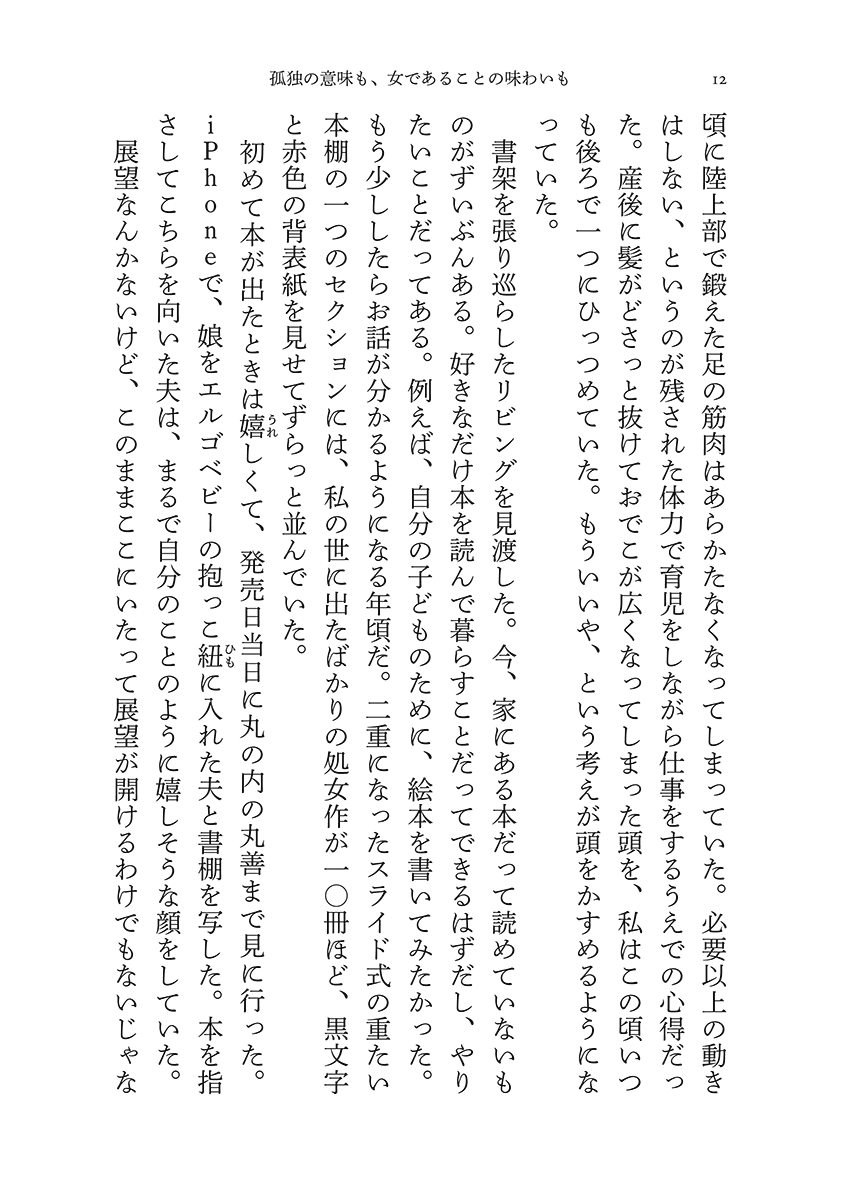 孤独の意味も、女であることの味わいも
12
頃に陸上部で鍛えた足の筋肉はあらかたなくなってしまっていた。必要以上の動き
はしない、というのが残された体力で育児をしながら仕事をするうえでの心得だっ
た。産後に髪がどさっと抜けておでこが広くなってしまった頭を、私はこの頃いつ
も後ろで一つにひっつめていた。もういいや、という考えが頭をかすめるようにな
っていた。
書架を張り巡らしたリビングを見渡した。今、家にある本だって読めていないも
のがずいぶんある。好きなだけ本を読んで暮らすことだってできるはずだし、やり
たいことだってある。例えば、自分の子どものために、絵本を書いてみたかった。
もう少ししたらお話が分かるようになる年頃だ。二重になったスライド式の重たい
本棚の一つのセクションには、私の世に出たばかりの処女作が一〇冊ほど、黒文字
と赤色の背表紙を見せてずらっと並んでいた。
初めて本が出たときは嬉うれしくて、発売日当日に丸の内の丸善まで見に行った。
iPhoneで、娘をエルゴベビーの抱っこ紐ひもに入れた夫と書棚を写した。本を指
さしてこちらを向いた夫は、まるで自分のことのように嬉しそうな顔をしていた。
展望なんかないけど、このままここにいたって展望が開けるわけでもないじゃな